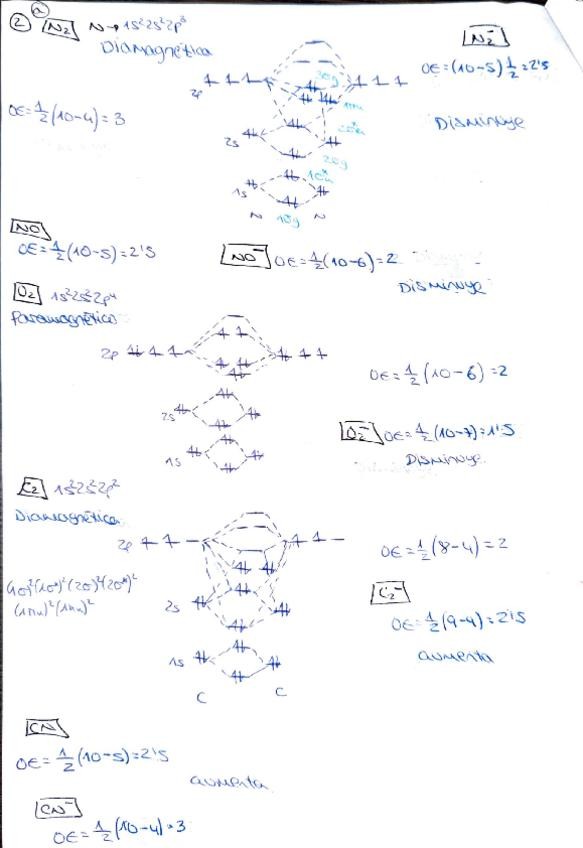 a)
2) N₂ N→1s²2s²2p³
Diamagnética
N₂⁻
OE=(10-5)½=2'5
Disminuye
OE=½(10-4)=3
2p
3σg
1πu
2s
2σ*u
2σg
1s
1σ*u
N 1σg N
NO
OE=½(10-5)=2'5
NO⁻ OE=½(10-6)=2
Disminuye
O₂ 1s²2s²2p⁴
Paramagnético
2p
OE=½(10-6)=2
2s
O₂⁻ OE=½(10-7)=1'5
Disminuye
1s
C₂ 1s²2s²2p²
Diamagnética
2p
OE=½(8-4)=2
(1σ)²(1σ*)²(2σ)²(2σ*)²
(1πu)²(1πu)²
2s
C₂⁻
OE=½(9-4)=2'5
aumenta
1s
C C
CN
OE=½(10-5)=2'5
aumenta
CN⁻
OE=½(10-4)=3